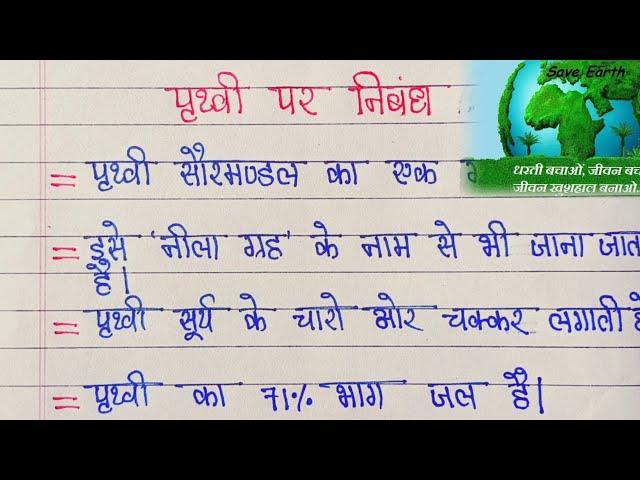 Save Earth
पृथ्वी पर निबंध
धरती बचाओ, जीवन बच
जीवन खुशहाल बनाओ.
= पृथ्वी सौरमण्डल का एक
= इसे 'नीला ग्रह' के नाम से भी जाना जात
है।
= पृथ्वी सूर्य के चारो ओर चक्कर लगाती है
= पृथ्वी का 71% भाग जल है।